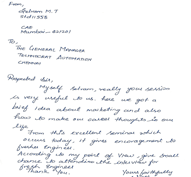 From,
To,
The General Manager
Technocrat Automation
Chennai
Respected Sir,
Myself Selvam, really your session
is very useful to us. here we got a
brief idea about marketing and also
how to make our career thoughts in our
life.
From this excellent seminar which
occurs today, it gives encouragement to
fresher Engineer.
According to my point of view, give small
chance to attention the interview for
fresh Engineer.
Thank You.
Yours faithfully